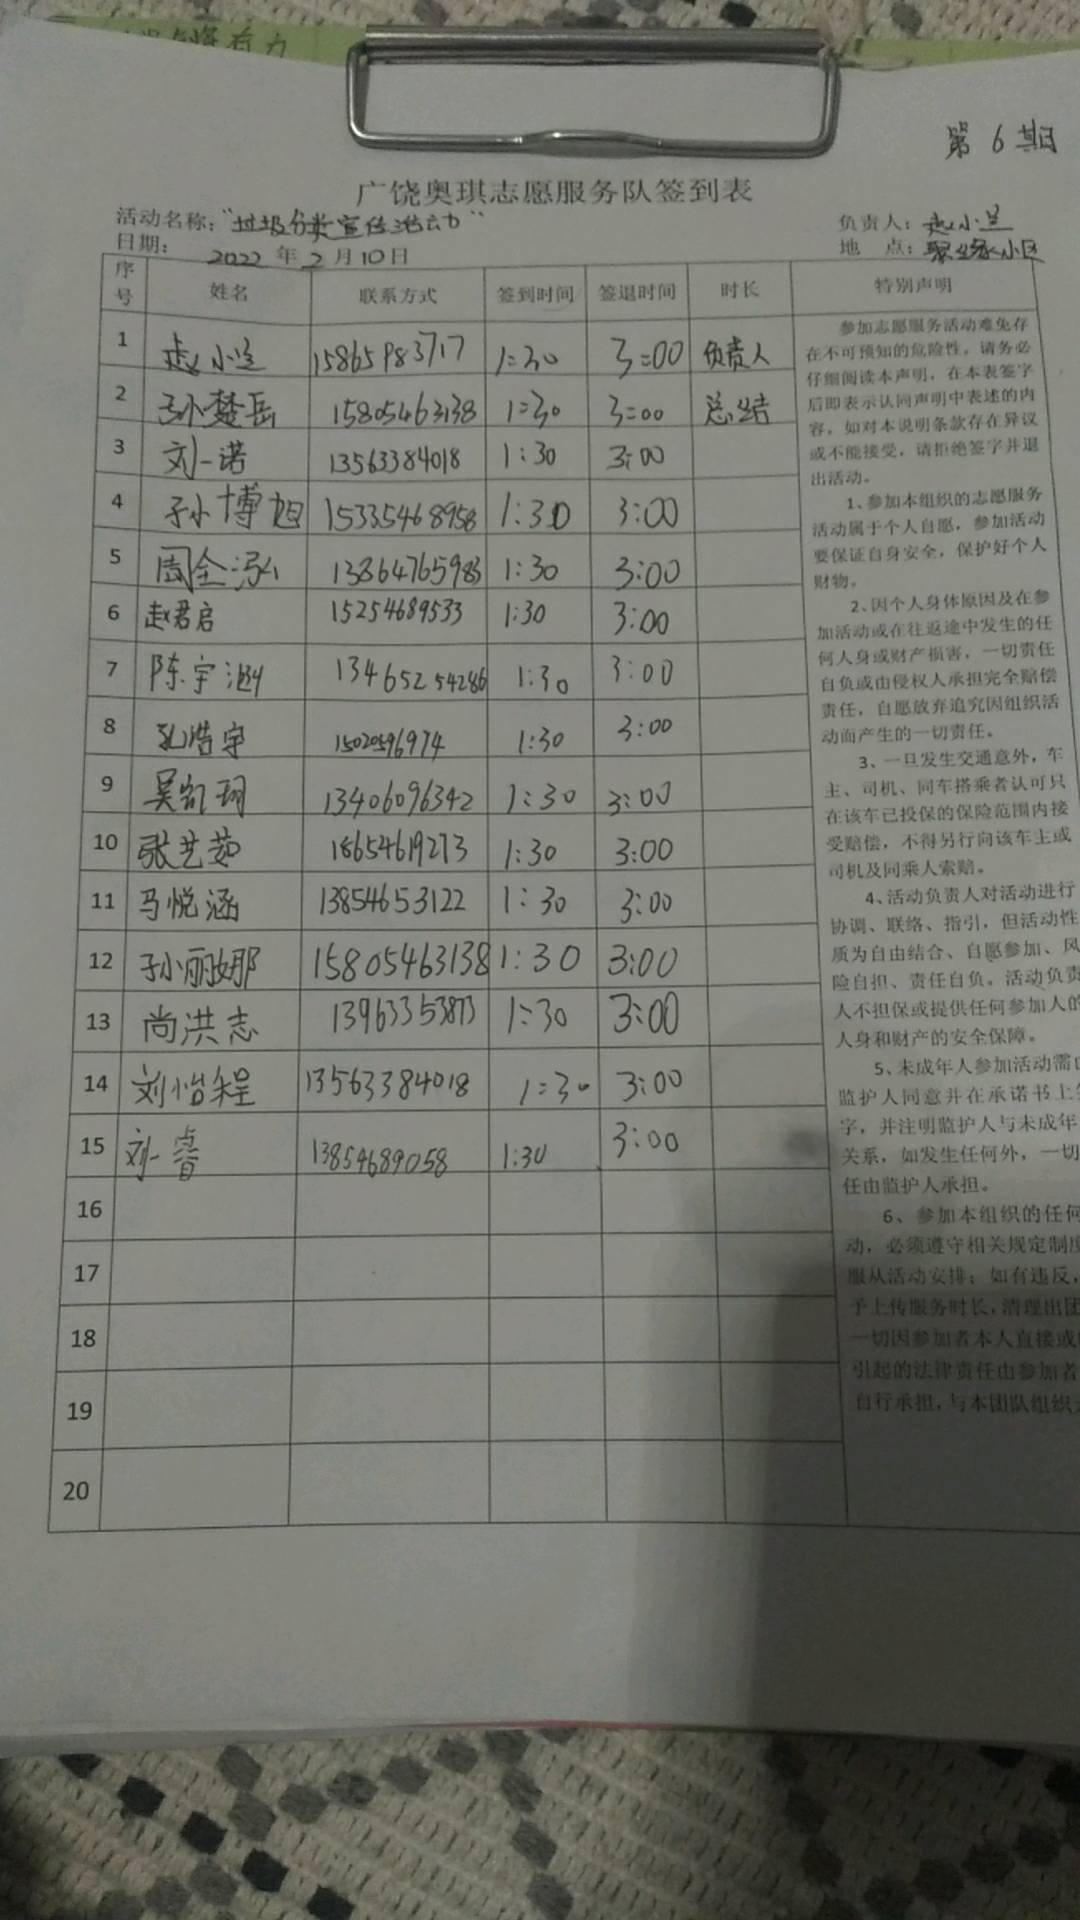 第6期
广饶奥琪志愿服务队签到表
活动名称:“垃圾分类宣传活动” 负责人:赵小兰
日期: 2022年2月10日 地 点:聚缘小区
序号 姓名 联系方式 签到时间 签退时间 时长 特别声明
1 赵小兰 15865983717 1:30 3:00 负责人
2 孙楚岳 15805463138 1:30 3:00 总结
3 刘一诺 13563384018 1:30 3:00
4 孙博旭 15335468958 1:30 3:00
5 周全泓 13864765983 1:30 3:00
6 赵君启 15254689533 1:30 3:00
7 陈宇 13465254286 1:30 3:00
8 孔浩宇 1502596974 1:30 3:00
9 吴凯珂 13406096342 1:30 3:00
10 张艺茹 18654619273 1:30 3:00
11 马悦涵 13854653122 1:30 3:00
12 孙丽娜 15805463138 1:30 3:00
13 尚洪志 13963353873 1:30 3:00
14 刘怡程 13563384018 1:30 3:00
15 刘睿 13854689058 1:30 3:00
16
17
18
19
20
参加志愿服务活动难免存
在不可预知的危险性,请务必
仔细阅读本声明,在本表签字
后即表示认同声明中表述的内
容。如对本说明条款存在异议
或不能接受,请拒绝签字并退
出活动。
1、参加本组织的志愿服务
活动属于个人自愿,参加活动
要保证自身安全,保护好个人
财物。
2、因个人身体原因及在参
加活动或在往返途中发生的任
何人身或财产损害,一切责任
自负或由侵权人承担完全赔偿
责任,自愿放弃追究因组织活
动而产生的一切责任。
3、一旦发生交通意外,车
主、司机、同车搭乘者认可只
在该车已投保的保险范围内接
受赔偿,不得另行向该车主或
司机及同乘人索赔。
4、活动负责人对活动进行
协调、联络、指引,但活动性
质为自由结合、自愿参加、风
险自担、责任自负。活动负责
人不担保或提供任何参加人的
人身和财产的安全保障。
5、未成年人参加活动需由
监护人同意并在承诺书上签
字,并注明监护人与未成年
关系,如发生任何外,一切
任由监护人承担。
6、参加本组织的任何
动,必须遵守相关规定制度
服从活动安排;如有违反,
予上传服务时长,清理出团
一切因参加者本人直接或
引起的法律责任由参加者
自行承担,与本团队组织